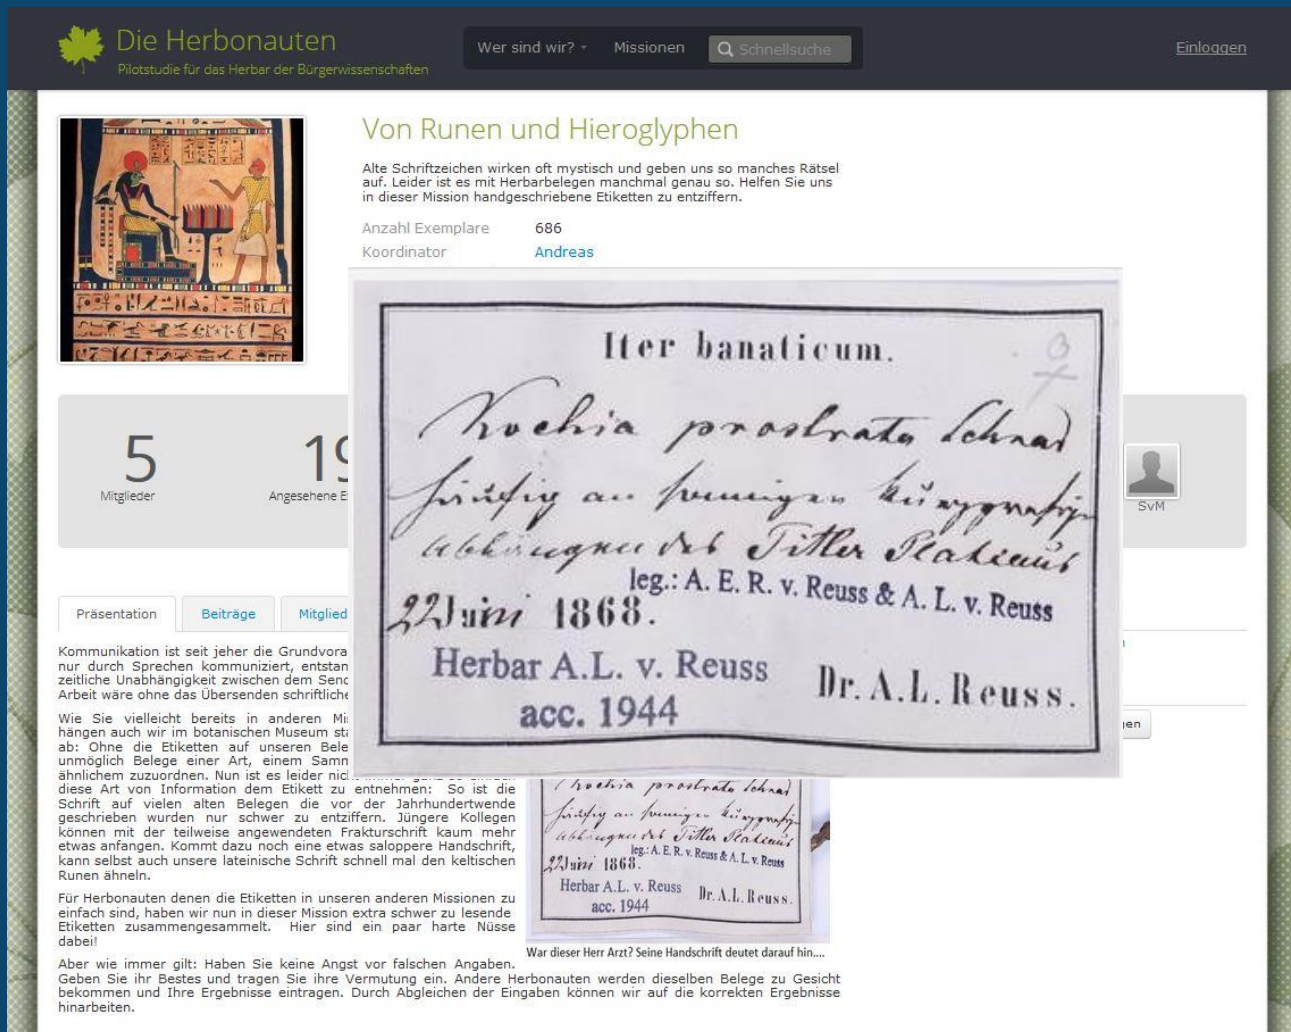 Die Herbonauten
Pilotstudie für das Herbar der Bürgerwissenschaften
Wer sind wir?
Missionen
Schnellsuche
Einloggen
Von Runen und Hieroglyphen
Alte Schriftzeichen wirken oft mystisch und geben uns so manches Rätsel
auf. Leider ist es mit Herbarbelegen manchmal genau so. Helfen Sie uns
in dieser Mission handgeschriebene Etiketten zu entziffern.
Anzahl Exemplare 686
Koordinator Andreas
Iter banaticum.
Kochia prostrata Schrad
häufig an sonnigen kurzgrasigen
Abhängen des Titler Plateaus
leg.: A. E. R. v. Reuss & A. L. v. Reuss
22 Juni 1868.
Herbar A.L. v. Reuss
Dr. A.L. Reuss.
acc. 1944
5
Mitglieder
19
Angesehene E
SvM
Präsentation
Beiträge
Mitglied
Kommunikation ist seit jeher die Grundvora
nur durch Sprechen kommuniziert, entstan
zeitliche Unabhängigkeit zwischen dem Send
Arbeit wäre ohne das Übersenden schriftliche
Wie Sie vielleicht bereits in anderen Mi
hängen auch wir im botanischen Museum sta
ab: Ohne die Etiketten auf unseren Bele
unmöglich Belege einer Art, einem Samm
ähnlichem zuzuordnen. Nun ist es leider nicht immer ganz so einfach
diese Art von Information dem Etikett zu entnehmen: So ist die
Schrift auf vielen alten Belegen die vor der Jahrhundertwende
geschrieben wurden nur schwer zu entziffern. Jüngere Kollegen
können mit der teilweise angewendeten Frakturschrift kaum mehr
etwas anfangen. Kommt dazu noch eine etwas saloppere Handschrift,
kann selbst auch unsere lateinische Schrift schnell mal den keltischen
Runen ähneln.
Für Herbonauten denen die Etiketten in unseren anderen Missionen zu
einfach sind, haben wir nun in dieser Mission extra schwer zu lesende
Etiketten zusammengesammelt. Hier sind ein paar harte Nüsse
dabei!
Aber wie immer gilt: Haben Sie keine Angst vor falschen Angaben.
Geben Sie ihr Bestes und tragen Sie ihre Vermutung ein. Andere Herbonauten werden dieselben Belege zu Gesicht
bekommen und Ihre Ergebnisse eintragen. Durch Abgleichen der Eingaben können wir auf die korrekten Ergebnisse
hinarbeiten.
Kochia prostrata Schrad
häufig an sonnigen kurzgrasigen
Abhängen des Titler Plateaus
leg.: A. E. R. v. Reuss & A. L. v. Reuss
22 Juni 1868.
Herbar A.L. v. Reuss
Dr. A.L. Reuss.
acc. 1944
War dieser Herr Arzt? Seine Handschrift deutet darauf hin....
gen